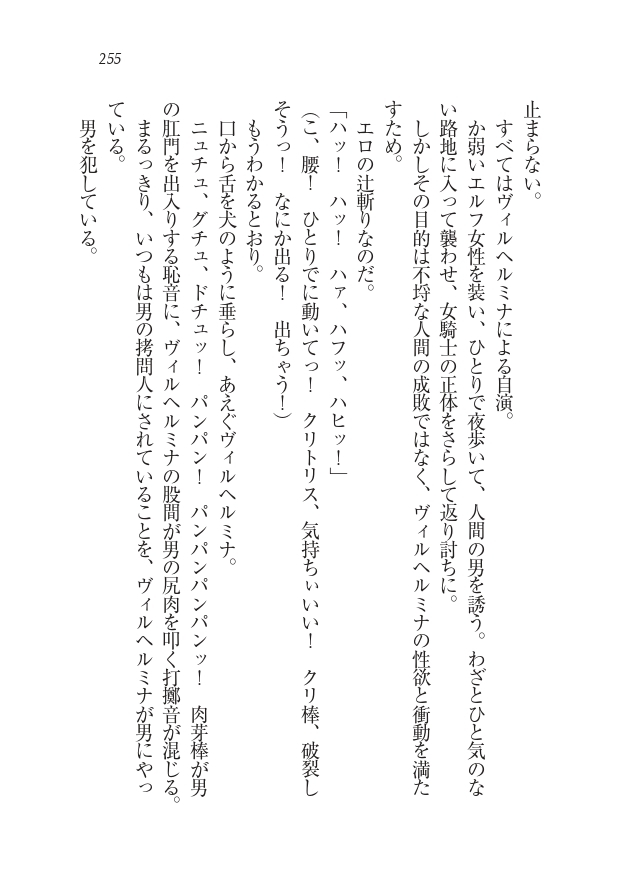 255
止まらない。
すべてはヴィルヘルミナによる自演。
か弱いエルフ女性を装い、ひとりで夜歩いて、人間の男を誘う。わざとひと気のな
い路地に入って襲わせ、女騎士の正体をさらして返り討ちに。
しかしその目的は不埒な人間の成敗ではなく、ヴィルヘルミナの性欲と衝動を満た
すため。
エロの辻斬りなのだ。
「ハッ！　ハッ！　ハァ、ハフッ、ハヒッ！」
（こ、腰！　ひとりでに動いてっ！　クリトリス、気持ちぃいい！　クリ棒、破裂し
そうっ！　なにか出る！　出ちゃう！）
もうわかるとおり。
口から舌を犬のように垂らし、あえぐヴィルヘルミナ。
ニュチュ、グチュ、ドチュッ！　パンパン！　パンパンパンパンッ！　肉芽棒が男
の肛門を出入りする恥音に、ヴィルヘルミナの股間が男の尻肉を叩く打擲音が混じる。
まるっきり、いつもは男の拷問人にされていることを、ヴィルヘルミナが男にやっ
ている。
男を犯している。